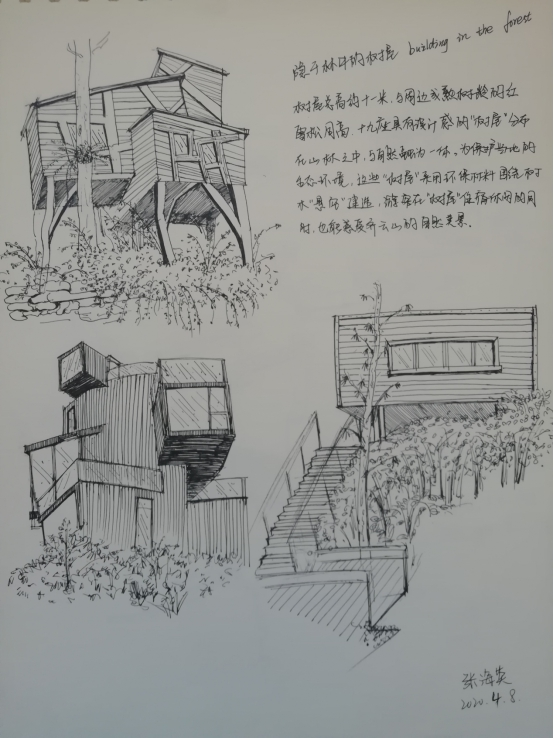 隐于林中的树屋 building in the forest
树屋总高约十一米,与周边成熟树龄的红
雪松同高,十九座具有设计感的“树屋”分布
在山林之中,与自然融为一体,为保护当地的
生态环境,这些“树屋”采用环保木料围绕树
木“悬空”建造,游客在“树屋”住宿休闲的同
时,也能尽赏齐云山的自然美景。
张海
2020.4.8.